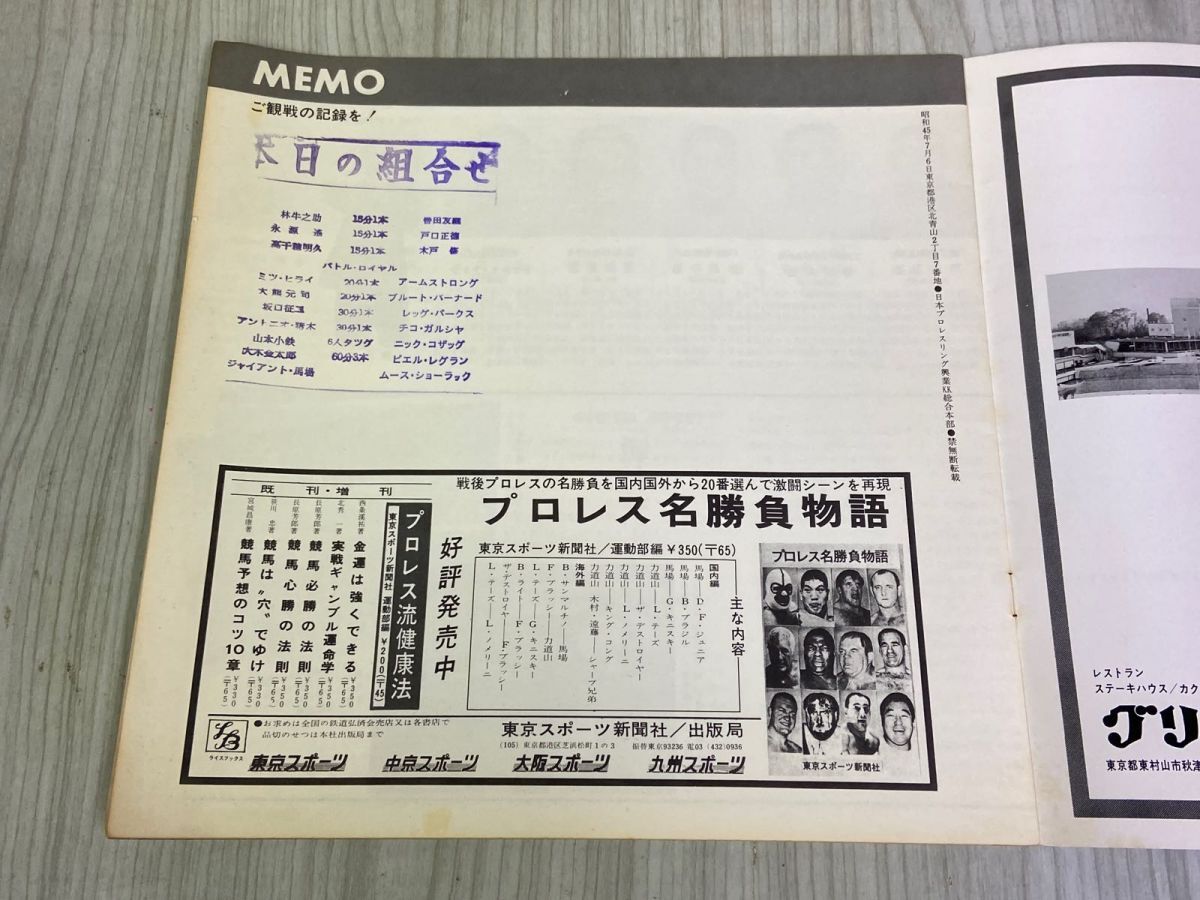 MEMO
ご観戦の記録を!
本日の組合せ
林牛之助 15分1本 誉田友繼
永源遙 15分1本 戸口正德
高千穂明久 15分1本 木戸修
バトル・ロイヤル
ミツ・ヒライ 20分1本 アームストロング
大熊元司 20分1本 ブルート・バーナード
坂口征二 30分1本 レッグ・パークス
アントニオ・猪木 30分1本 チコ・ガルシヤ
山本小鉄 6人タツグ ニック・コザッグ
大木金太郎 60分3本 ピエル・レグラン
ジャイアント・馬場 ムース・ショーラック
昭和45年7月6日東京都港区北青山2丁目7番地●日本プロレスリング興業KK総合本部●禁無断転載
戦後プロレスの名勝負を国内国外から20番選んで激闘シーンを再現
プロレス名勝負物語
東京スポーツ新聞社/運動部編¥350(〒65)
好評発売中
主な内容
国内編
馬場——D・F・ジュニア
馬場——B・ブラジル
馬場——G・キニスキー
力道山——L・テーズ
力道山——ザ・デストロイヤー
力道山——L・ノメリーニ
力道山——キング・コング
力道山 木村・遠藤——シャープ兄弟
海外編
B・サンマルチノ——馬場
F・ブラッシー——力道山
L・テーズ——G・キニスキー
B・ライト——F・ブラッシー
ザ・デストロイヤー——F・ブラッシー
L・テーズ——L・ノメリーニ
プロレス流健康法
東京スポーツ新聞社 運動部編 ¥200(〒45)
既刊・増刊
金運は強くできる ¥350(〒65)
北秀一著 実戦ギャンブル運命学 ¥330(〒65)
長原芳郎著 競馬必勝の法則 ¥350(〒65)
長原芳郎著 競馬心勝の法則 ¥350(〒65)
笹川忠著 競馬は〝穴〟でゆけ ¥330(〒65)
宮城昌康著 競馬予想のコツ10章 ¥330(〒65)
ライスブックス
●お求めは全国の鉄道弘済会売店又は各書店で
品切のせつは本社出版局まで
東京スポーツ新聞社/出版局
(105) 東京都港区芝浜松町1の3 振替東京93236 電03(432)0936
東京スポーツ 中京スポーツ 大阪スポーツ 九州スポーツ
プロレス名勝負物語
東京スポーツ新聞社
レストラン
ステーキハウス/カク
グリ
東京都東村山市秋津